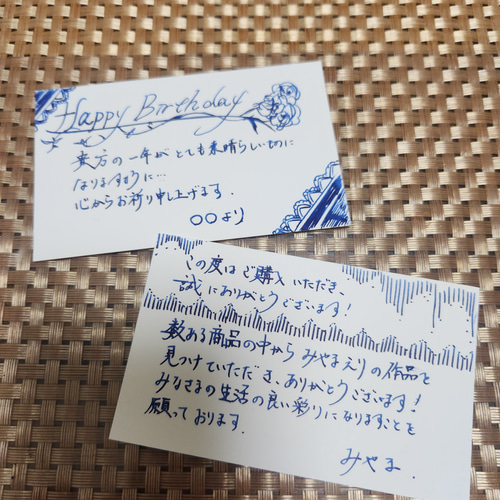 Happy Birthday
貴方の一年がとても素晴らしいものに
なりますように…
心からお祈り申し上げます.
〇〇より
この度はご購入いただき
誠にありがとうございます!
数ある商品の中からみやまえりの作品を
見つけていただき、ありがとうございます!
みなさまの生活の良い彩りになりますことを
願っております.
みやま.